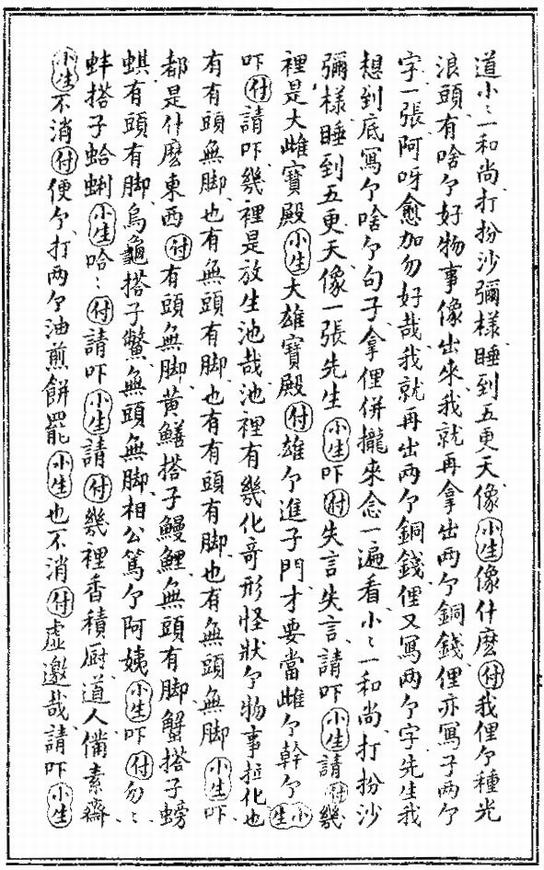 道小〻一和尚打扮沙彌様睡到五更天像小生像什麽付我俚个種光
浪頭有啥个好物事像出來我就再拿出两个銅錢俚亦寫子两个
字一張阿呀愈加勿好哉我就再出两个銅錢俚又寫两个字先生我
想到底寫个啥个句子拿俚併攏來念一遍看小〻一和尚打扮沙
彌様睡到五更天像一張先生小生吓付失言失言請吓小生請付幾
裡是大雌寶殿小生大雄寶殿付雄个進子門才要當雌个幹个小生
吓付請吓幾裡是放生池哉池裡有幾化奇形怪狀个物事拉化也
有有頭無脚也有無頭有脚也有有頭有脚也有無頭無脚小生吓
都是什麽東西付有頭無脚黄鱔搭子鰻鯉無頭有脚蟹搭子螃
蜞有頭有脚烏龜搭子鱉無頭無脚相公篤个阿姨小生吓付勿〻
蚌搭子蛤蜊小生哈〻付請吓小生請付幾裡香積厨道人備素齋
小生不消付便个打两个油煎餅罷小生也不消付虚邀哉請吓小生